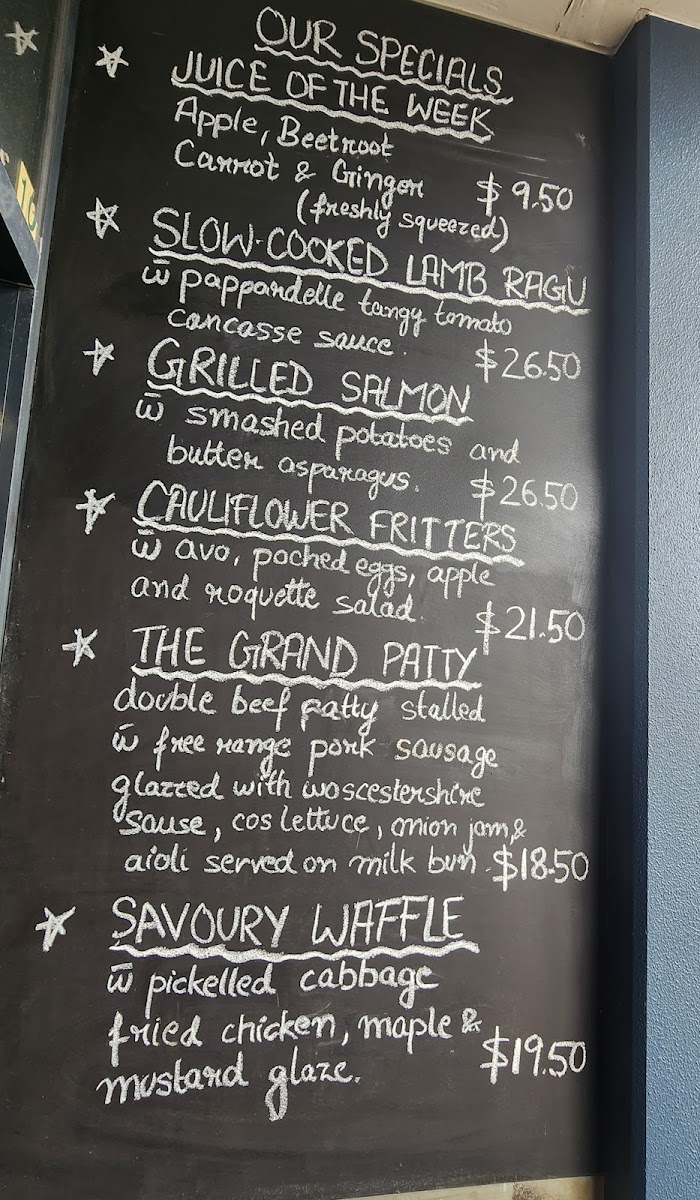 OUR SPECIALS
JUICE OF THE WEEK
Apple, Beetroot
Carrot & Ginger $9.50
(freshly squeezed)
SLOW-COOKED LAMB RAGU
w̄ pappardelle tangy tomato
cancasse sauce. $26.50
GRILLED SALMON
w̄ smashed potatoes and
butter asparagus. $26.50
CAULIFLOWER FRITTERS
w̄ avo, poched eggs, apple
and roquette salad. $21.50
THE GRAND PATTY
double beef patty stalled
w̄ free range pork sausage
glazzed with woscestershire
sause, cos lettuce, onion jam, &
aioli served on milk bun. $18.50
SAVOURY WAFFLE
w̄ pickelled cabbage
fried chicken, maple &
mustard glaze. $19.50